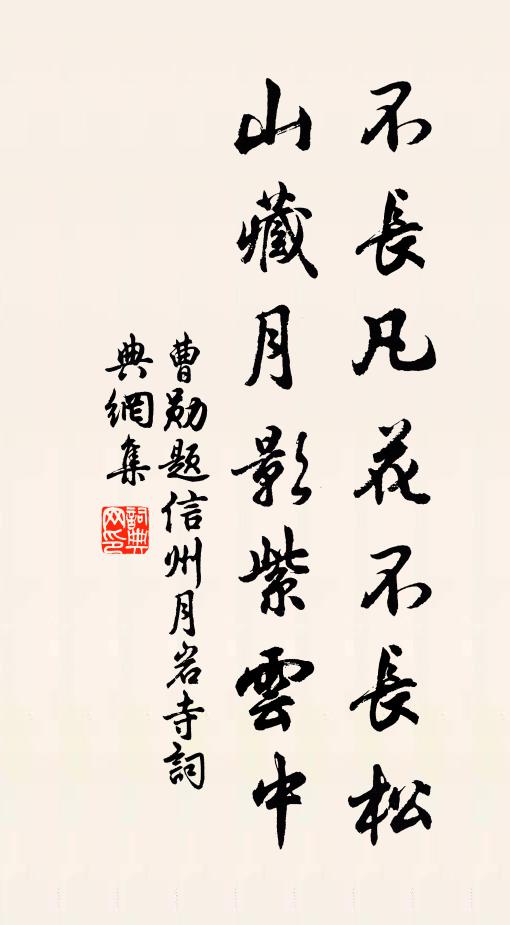 不長凡花不長松
山藏月影紫雲中
曹勛題信州月岩寺詞
典網集
詞典網印